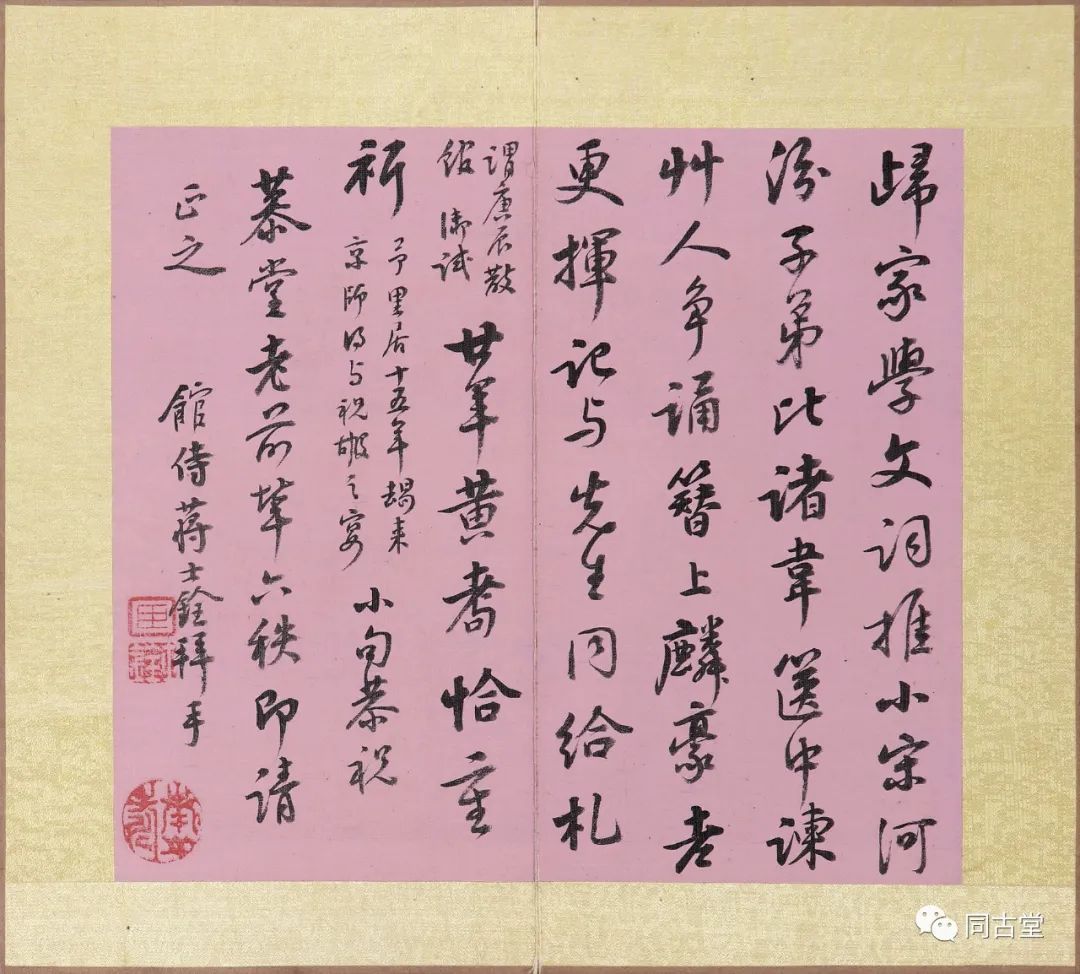 歸家學文詞推小宋河
汾子弟比諸韋篋中諫
艸人爭誦簪上麟豪老
更揮記与先生同給札
謂庚辰散
館 御試
廿年黃耇恰重
祈
予里居十五年朅来
京師得与祝嘏之宴
小句恭祝
慕堂老前輩六秩即請
正之
館侍蔣士銓拜手
同古堂